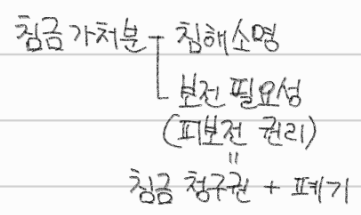 침금가처분 - 침해소명
보전 필요성
(피보전 권리)
=
침금 청구권 + 폐기